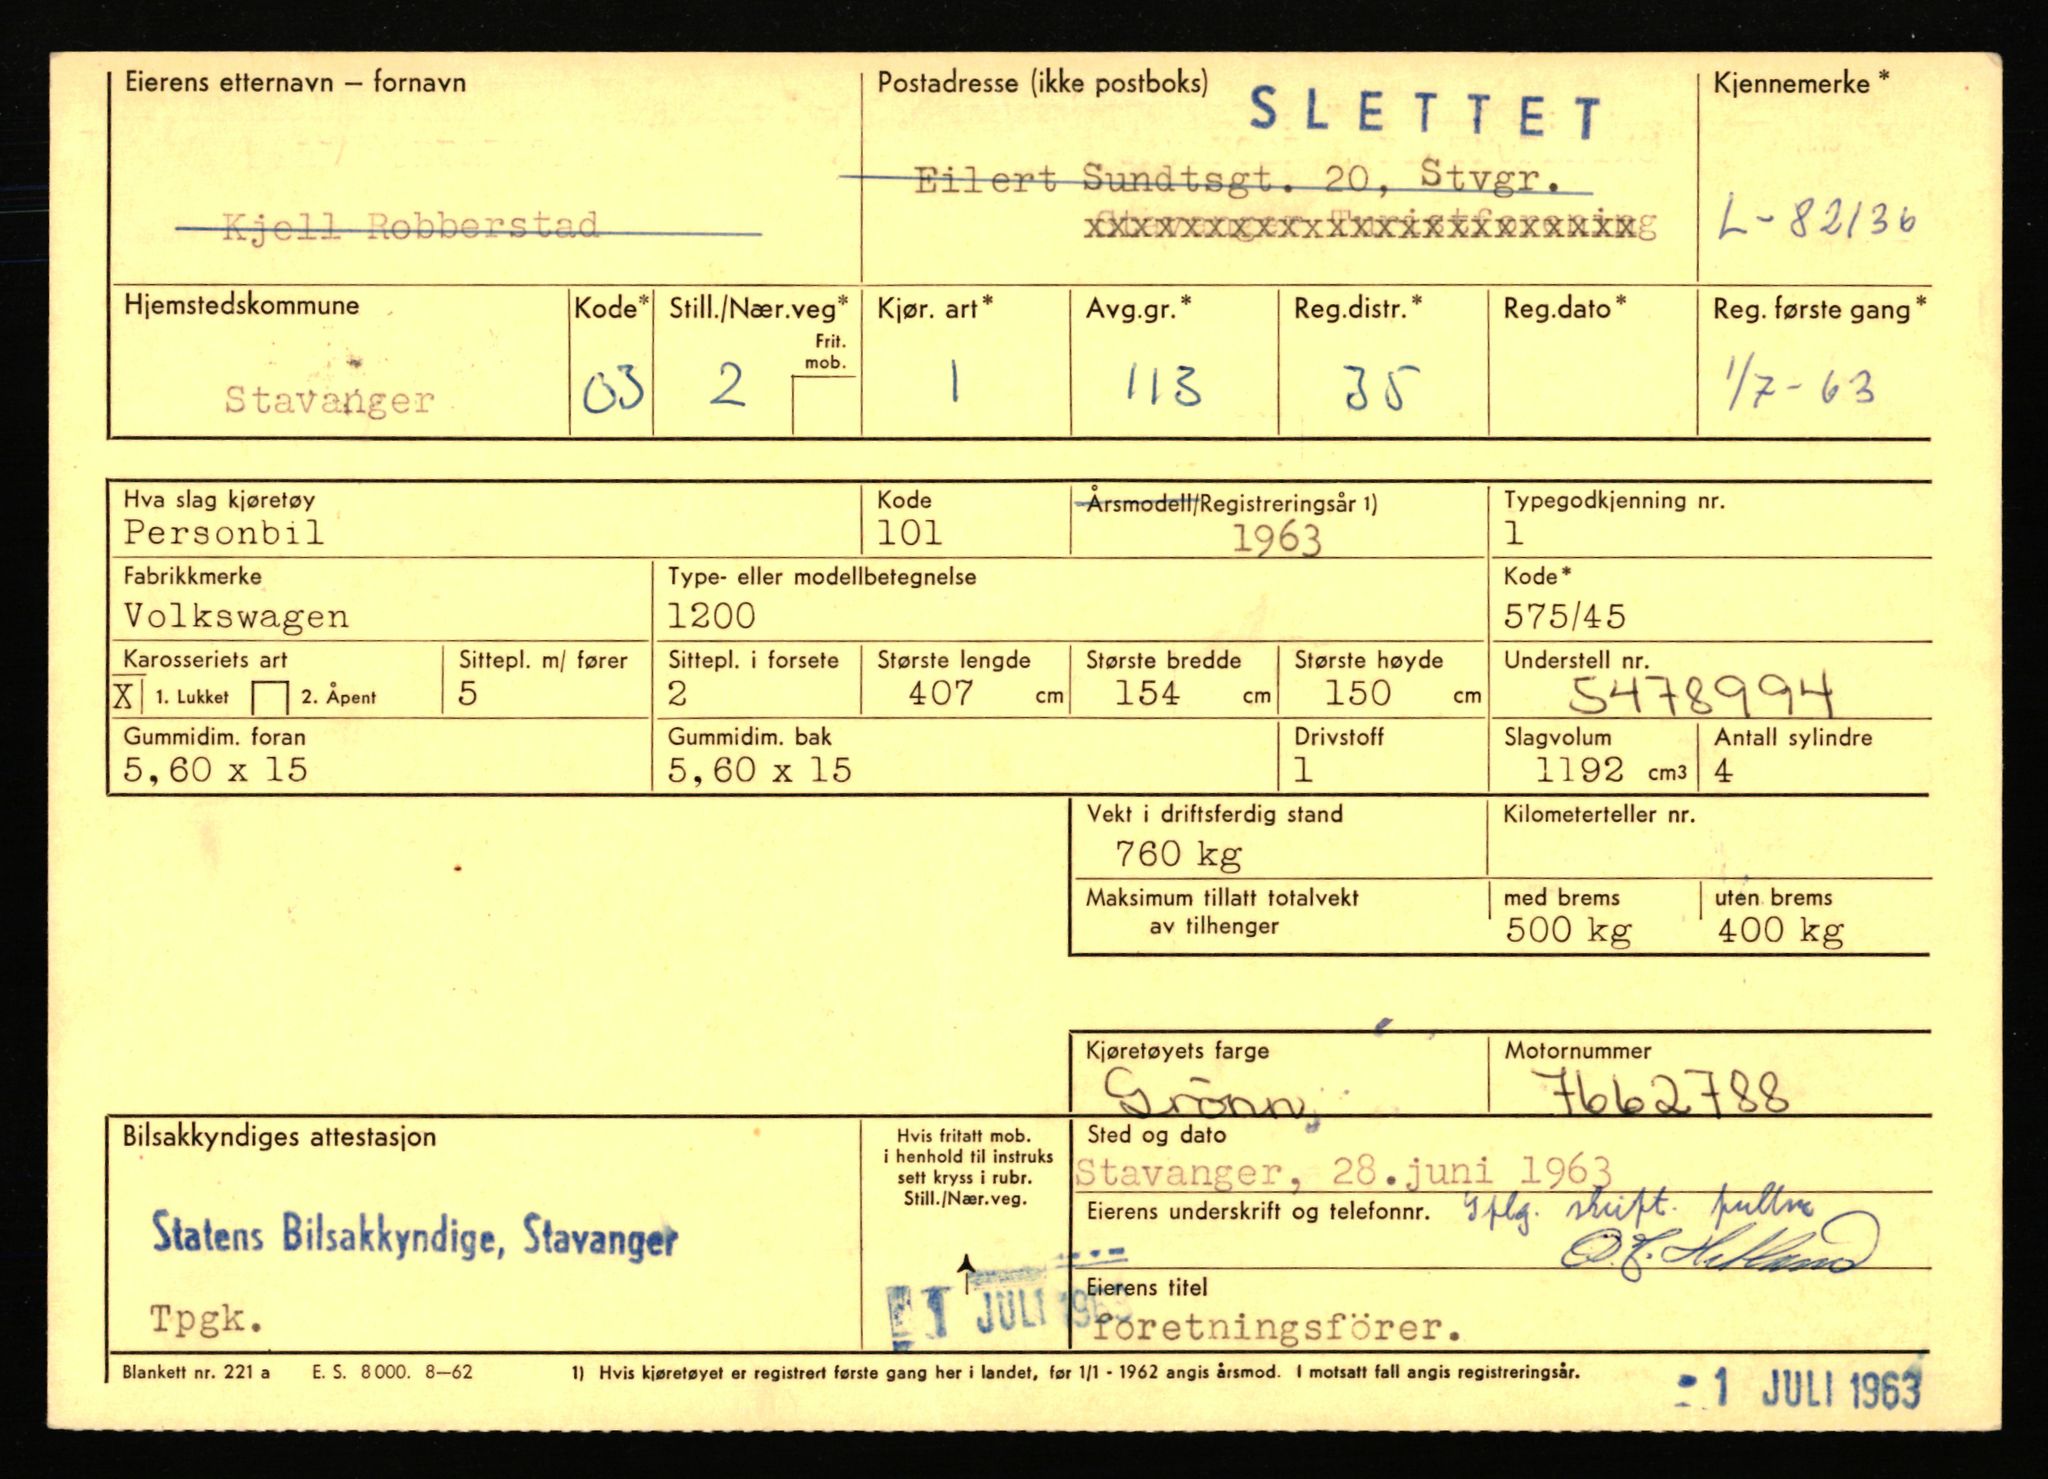 Eierens etternavn – fornavn
Postadresse (ikke postboks)
Kjennemerke*
SLETTET
Eilert Sundtsgt. 20, Stvgr.
Kjell Robberstad
Stavanger Turistforening
L-82136
Hjemstedskommune
Kode*
Still./Nær.veg*
Kjør. art*
Avg.gr.*
Reg.distr.*
Reg.dato*
Reg. første gang*
Frit. mob.
Stavanger
03
2
1
113
35
1/7-63
Hva slag kjøretøy
Kode
Årsmodell/Registreringsår 1)
Typegodkjenning nr.
Personbil
101
1963
1
Fabrikkmerke
Type- eller modellbetegnelse
Kode*
Volkswagen
1200
575/45
Karosseriets art
Sittepl. m/ fører
Sittepl. i forsete
Største lengde
Største bredde
Største høyde
Understell nr.
X 1. Lukket 2. Åpent
5
2
407 cm
154 cm
150 cm
5478994
Gummidim. foran
Gummidim. bak
Drivstoff
Slagvolum
Antall sylindre
5,60 x 15
5,60 x 15
1
1192 cm3
4
Vekt i driftsferdig stand
Kilometerteller nr.
760 kg
Maksimum tillatt totalvekt
av tilhenger
med brems
uten brems
500 kg
400 kg
Kjøretøyets farge
Motornummer
Grönn
7662788
Bilsakkyndiges attestasjon
Hvis fritatt mob.
i henhold til instruks
sett kryss i rubr.
Still./Nær.veg.
Sted og dato
Stavanger, 28.juni 1963
Eierens underskrift og telefonnr.
Statens Bilsakkyndige, Stavanger
1 JULI 1963
Eierens titel
Tpgk.
foretningsförer.
Blankett nr. 221 a E. S. 8000. 8–62
1) Hvis kjøretøyet er registrert første gang her i landet, før 1/1 - 1962 angis årsmod. I motsatt fall angis registreringsår.
-1 JULI 1963